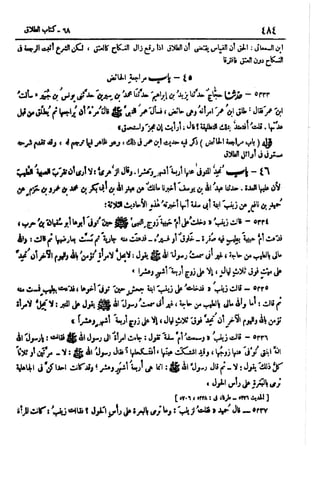 ٤٨٤ ٦٨ - كتاب الطلاق
ابن السمعاني : الحق أن القياس يقتضي أن الطلاق إذا وقع زال النكاح كالعتق ، لكن الشرع أثبت الرجعة في
النكاح دون العتق فافترقا
٤٥ - باب مراجعة الحائض
٥٣٣٣ - حدثنا حجاج حدثنا يزيد بن إبراهيم حدثنا محمد بن سيرين حدثني يونس بن جبير « سألت
ابن عمر فقال : طلق ابن عمر امرأته وهي حائض ، فسأل عمر النبي ﷺ فأمره أن يراجعها ثم يطلق من قبل
عدتها . قلت أفتعتد بتلك التطليقة ؟ قال : أرأيت إن عجز واستحمق »
قوله ( باب مراجعة الحائض ) ذكر فيه حديث ابن عمر في ذلك ، وهو ظاهر فيما ترجم له ، وقد تقدم شرحه
مستوفى في أوائل الطلاق
٤٦ - باب تحد المتوفى عنها أربعة أشهر وعشرا . وقال الزهري : لا أرى أن تقرب الصبية الطيب
لأن عليها العدة . حدثنا عبد الله بن يوسف أخبرنا مالك عن عبد الله بن أبي بكر بن محمد بن عمرو بن حزم عن
حميد بن نافع عن زينب ابنة أبي سلمة أنها أخبرته هذه الأحاديث الثلاثة :
٥٣٣٤ - قالت زينب « دخلت على أم حبيبة زوج النبي ﷺ حين توفي أبوها أبو سفيان بن حرب ،
فدعت أم حبيبة بطيب فيه صفرة - خلوق أو غيره - فدهنت منه جارية ثم مست بعارضيها ثم قالت : والله
مالي بالطيب من حاجة ، غير أني سمعت رسول الله ﷺ يقول : لا يحل لامرأة تؤمن بالله واليوم الآخر أن تحد
على ميت فوق ثلاث ليال ، إلا على زوج أربعة أشهر وعشرا »
٥٣٣٥ - قالت زينب « فدخلت على زينب ابنة جحش حين توفي أخوها ، فدعت بطيب فمست منه
ثم قالت : أما والله مالي بالطيب من حاجة ، غير أني سمعت رسول الله ﷺ يقول على المنبر : لا يحل لامرأة
تؤمن بالله واليوم الآخر أن تحد فوق ثلاث ليال ، إلا على زوج أربعة أشهر وعشرا »
٥٣٣٦ - قالت زينب « وسمعت أم سلمة تقول : جاءت امرأة إلى رسول الله ﷺ فقالت : يا رسول الله
إن ابنتي توفي عنها زوجها ، وقد اشتكت عينها ، أفتكحلها ؟ فقال رسول الله ﷺ : لا - مرتين أو ثلاثا
كل ذلك يقول : لا - ثم قال رسول الله ﷺ : إنما هي أربعة أشهر وعشر ؛ وقد كانت إحداكن في الجاهلية
ترمي بالبعرة على رأس الحول »
[ الحديث ٥٣٣٦ - طرفاه في : ٥٣٣٨ ، ٥٧٠٦ ]
٥٣٣٧ - قال حميد « فقلت لزينب : وما ترمي بالبعرة على رأس الحول ؟ فقالت زينب : كانت المرأة